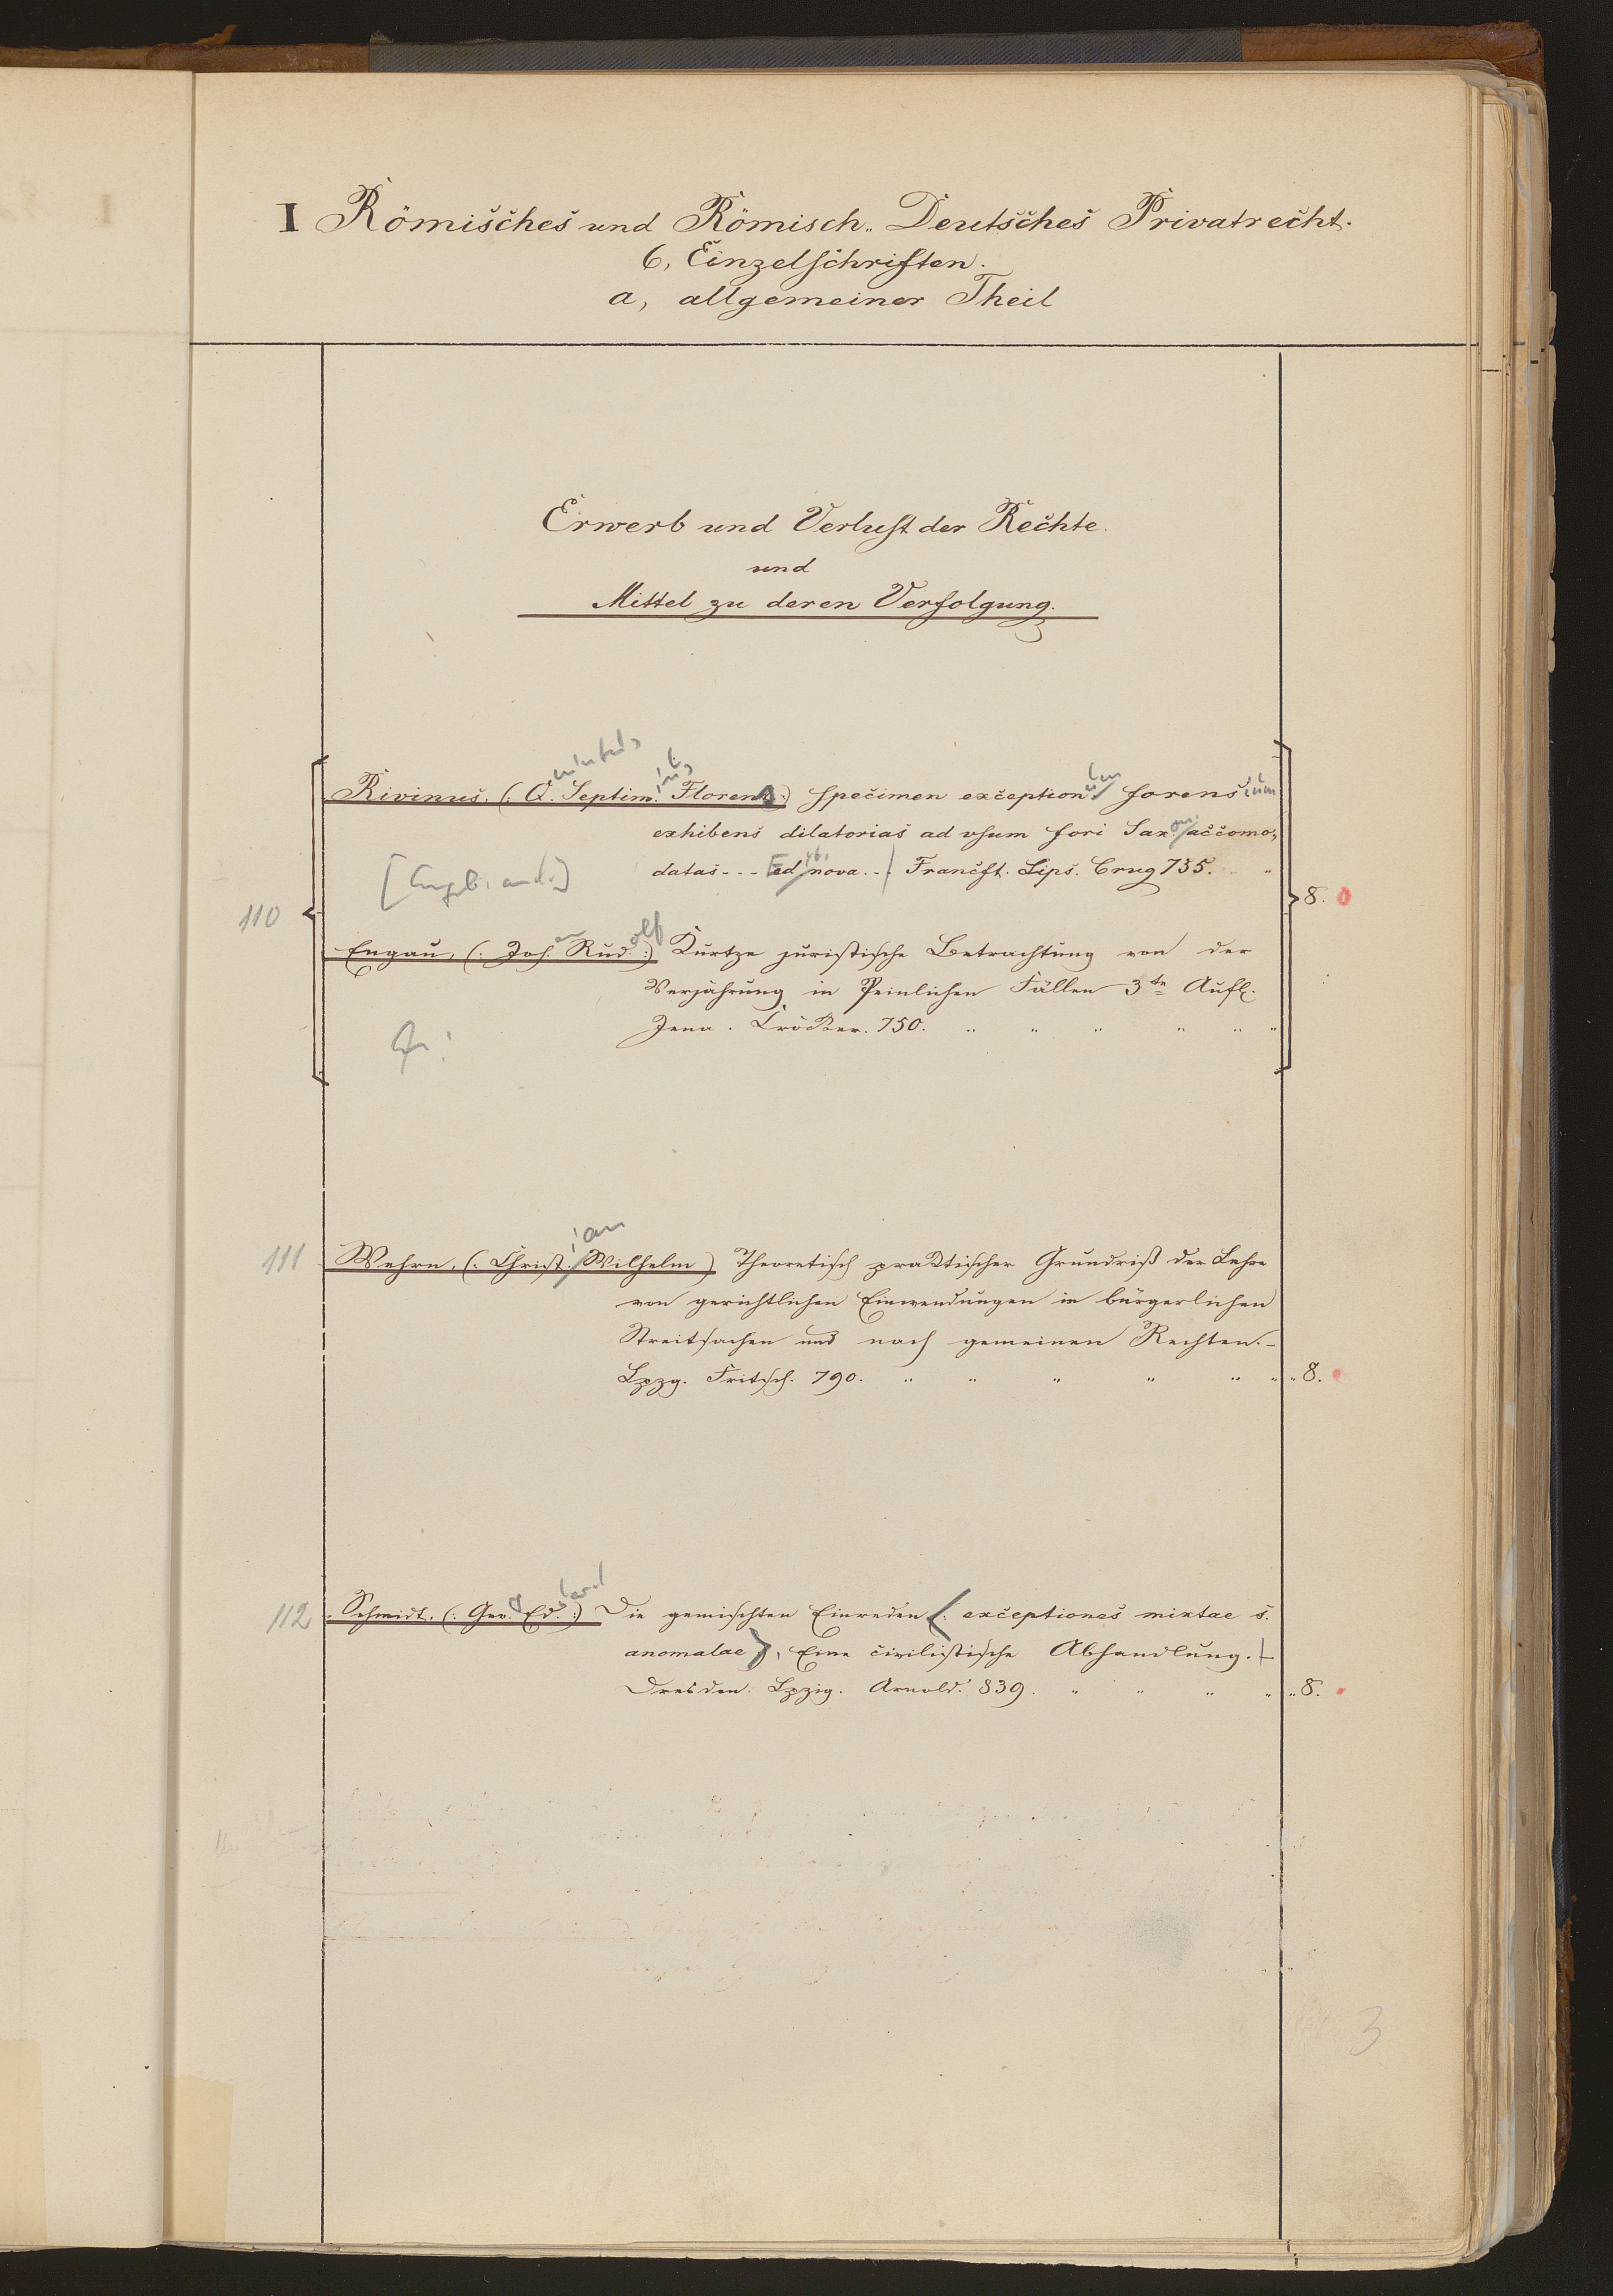 I Römisches und Römisch-Deutsches Privatrecht.
6, Einzelschriften.
a, allgemeiner Theil
Erwerb und Verlust der Rechte
und
Mittel zu deren Verfolgung.
Rivinus, (: Q. Septim. Florens :) specimen exception forensium
exhibens dilatorias ad usum fori Sax. accomo-
datas - - - Ed nova. - Francft. Lips. Crug 735.
110
8.
Engau, (: Joh. Rud. :) Kurtze juristische Betrachtung von der
Verjährung in Peinlichen Fällen 3te Aufl.
Jena. Cröker. 750.
111 Wehrn, (: Christ. Wilhelm) Theoretisch praktischer Grundriß der Lehre
von gerichtlichen Einwendungen in bürgerlichen
Streitsachen und nach gemeinen Rechten. -
Lpzg. Fritsch. 790. 8.
112 Schmidt, (: Geo. Ed. :) Die gemischten Einreden (: exceptiones mixtae s.
anomalae), Eine civilistische Abhandlung. -
Dresden. Lpzig. Arnold. 839. 8.
3